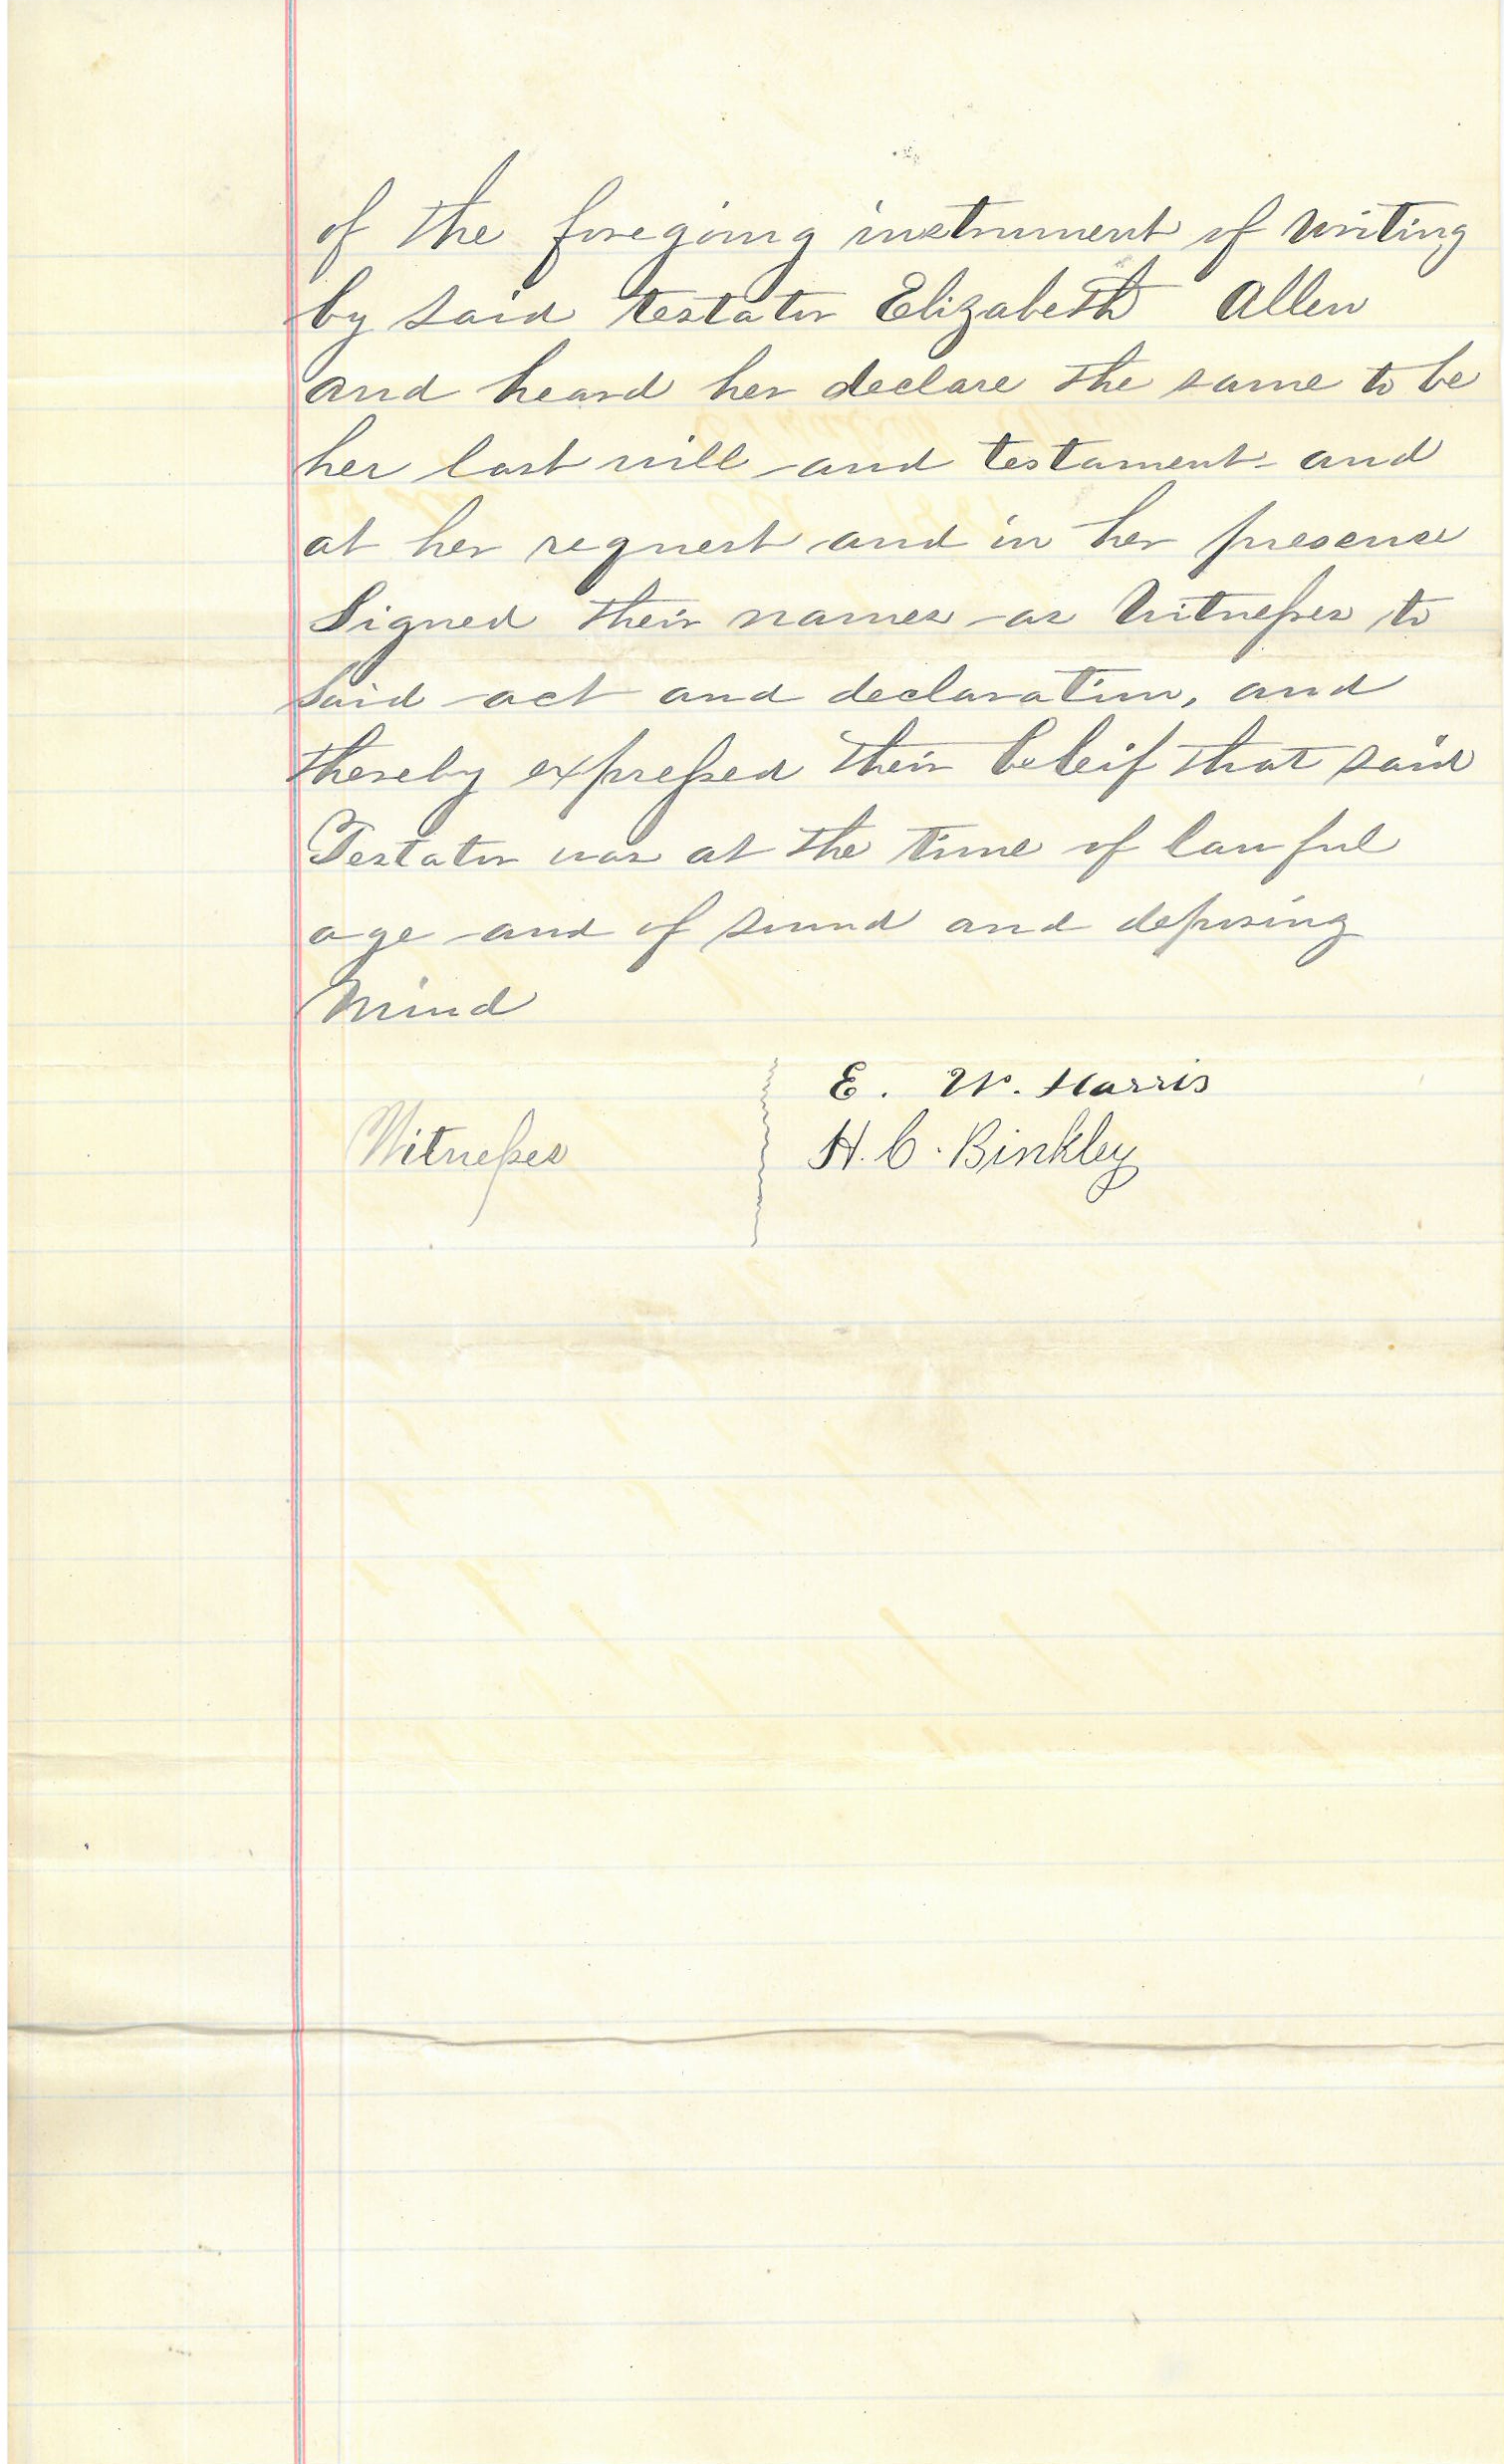 of the foregoing instrument of writing
by said testator Elizabeth Allen
and heard her declare the same to be
her last will and testament and
at her request and in her presence
Signed their names as Witnesses to
said act and declaration, and
thereby expressed their beleif that said
Testator was at the time of lawful
age and of sound and deposing
Mind
E. W. Harris
Witnesses H. C. Binkley